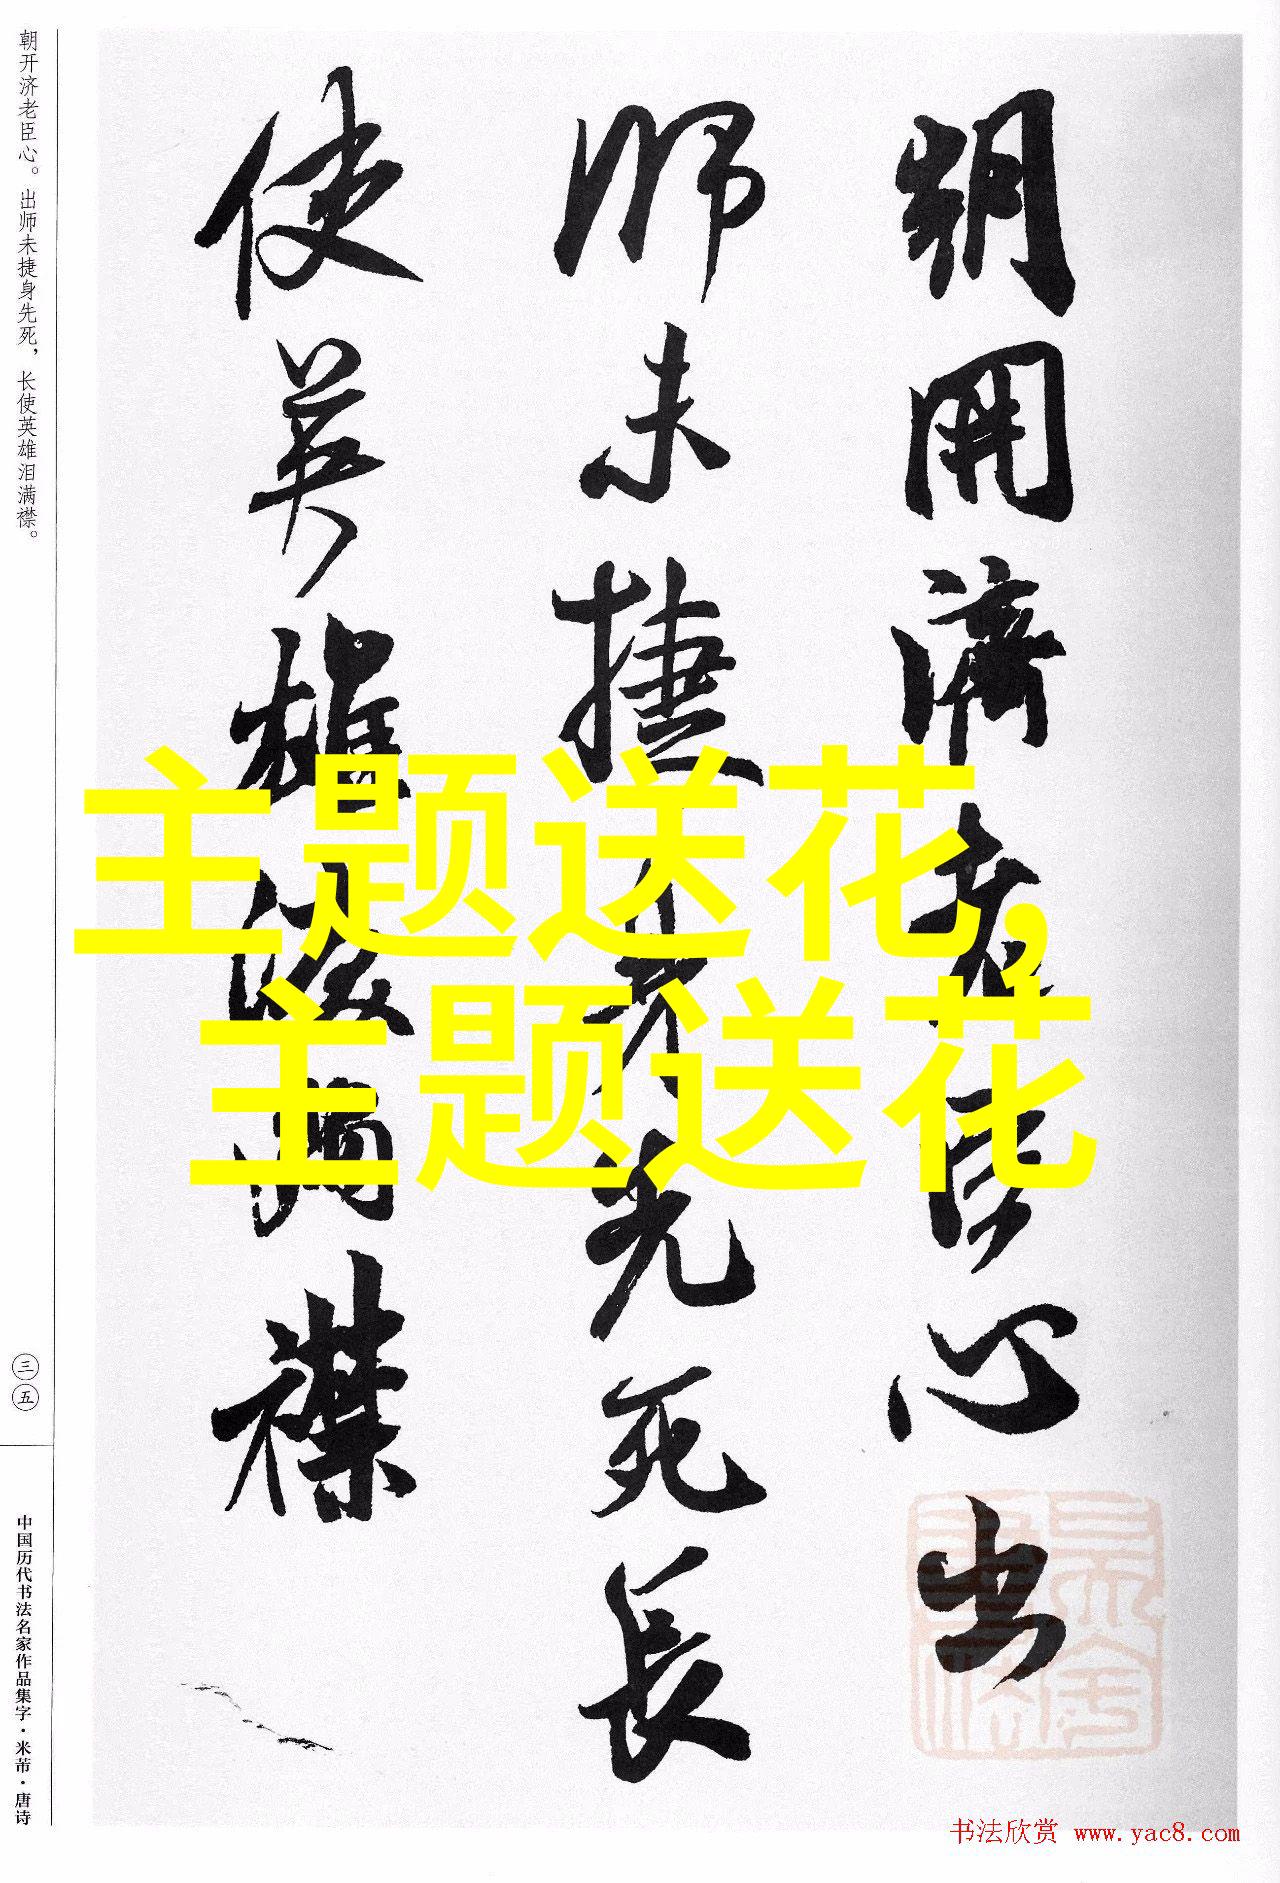 朝开济老臣心。出师未捷身先死，长使英雄泪满襟。
三五
中国历代书法名家作品集字·米芾·唐诗
朝開濟老臣心出
師未捷身先死長
使英雄淚滿襟
主题送花,
主题送花
书法欣赏 www.yac8.com